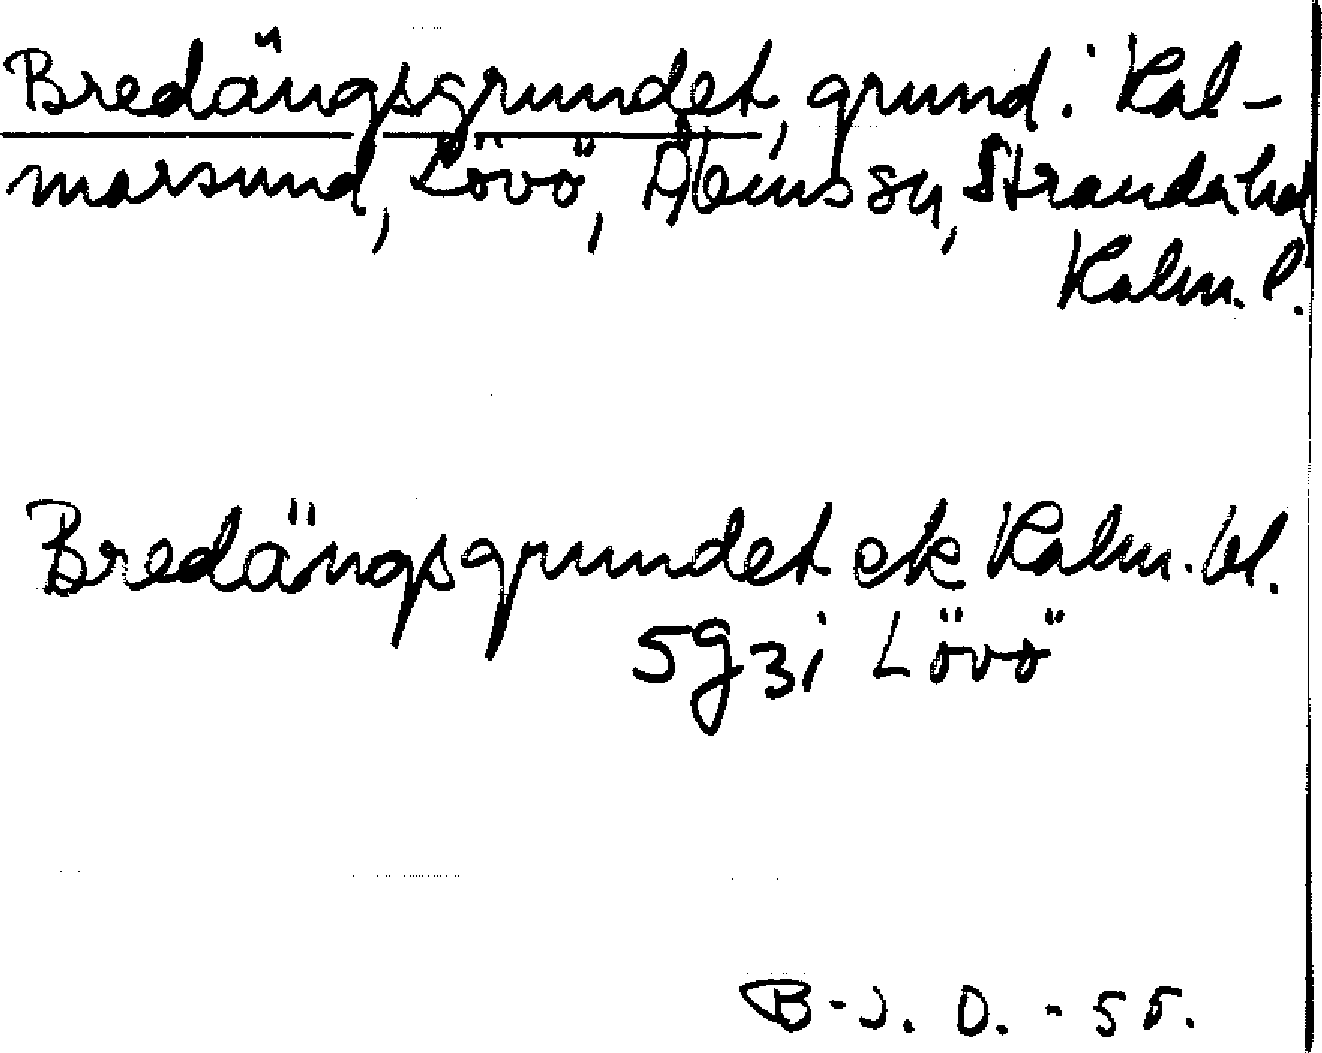 Bredängsgrundet, grund i Kal-
marsund, Lövö, Ålems sn, Stranda hd
Kalm. l.
Bredängsgrundet ek Kalm. bl.
5g3i Lövö
B-J. O. -55.